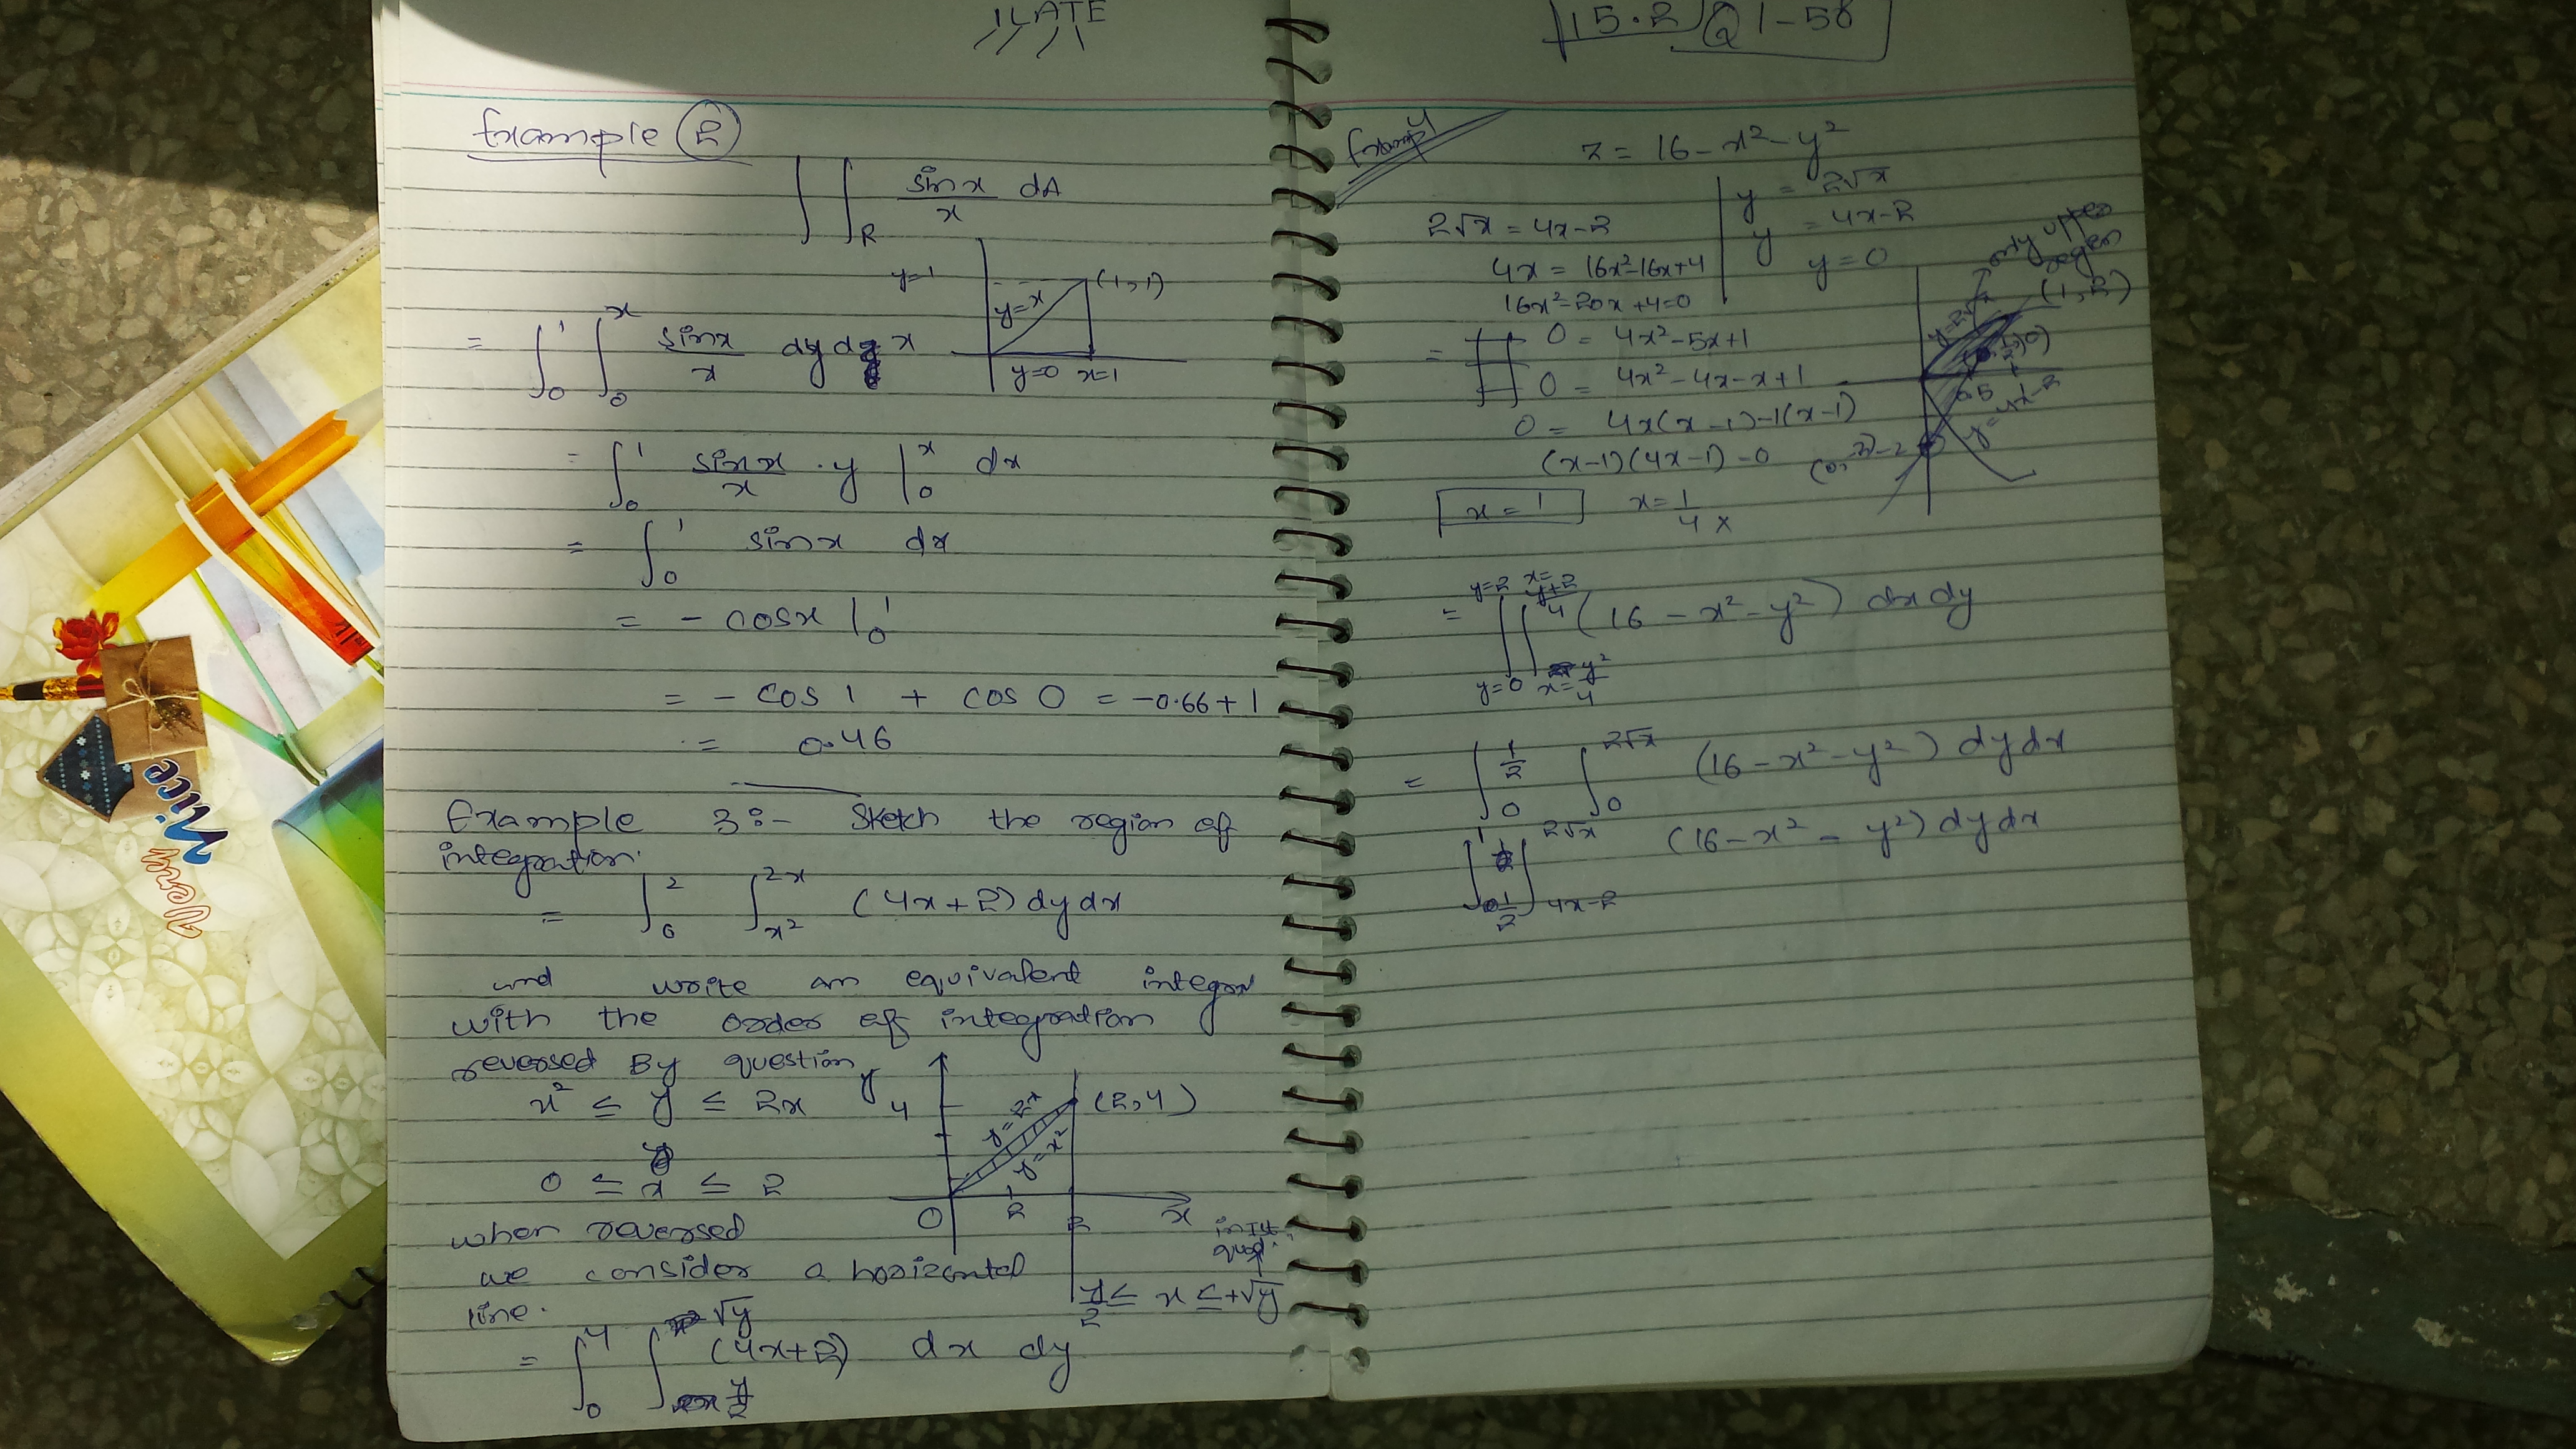 ILATE
Example 2
∫ ∫_R sinx/x dA
y=1
(1,1)
y=x
y=0 x=1
= ∫_0^1 ∫_0^x sinx/x dy d x
= ∫_0^1 sinx/x . y |_0^x dx
= ∫_0^1 sinx dx
= - cosx |_0^1
= - cos 1 + cos 0 = -0.66 + 1
= 0.46
Example 3:- Sketch the region of
integration.
= ∫_0^2 ∫_{x^2}^{2x} (4x+2) dy dx
and write an equivalent integral
with the order of integration
reversed By question
x^2 ≤ y ≤ 2x
0 ≤ x ≤ 2
y
4
(2,4)
y=2x
y=x^2
0 2 2 x
when reversed
we consider a horizontal
line.
in Ist
quad.
y/2 ≤ x ≤ +√y
= ∫_0^4 ∫_{y/2}^{√y} (4x+2) dx dy
15.2 Q 1-58
Example 4
z = 16 - x^2 - y^2
y = 2√x
y = 4x-2
y = 0
2√x = 4x-2
4x = 16x^2-16x+4
16x^2-20x+4=0
0 = 4x^2-5x+1
0 = 4x^2-4x-x+1
0 = 4x(x-1)-1(x-1)
(x-1)(4x-1)=0
x = 1 x = 1/4 ×
only upper
region
(1,2)
y=2√x
0.5
y=4x-2
= ∫_{y=0}^{y=2} ∫_{x=y^2/4}^{x=y+2/4} (16 - x^2 - y^2) dx dy
= ∫_0^{1/2} ∫_0^{2√x} (16-x^2-y^2) dy dx
∫_{1/2}^1 ∫_{4x-2}^{2√x} (16-x^2-y^2) dy dx
Very
Nice